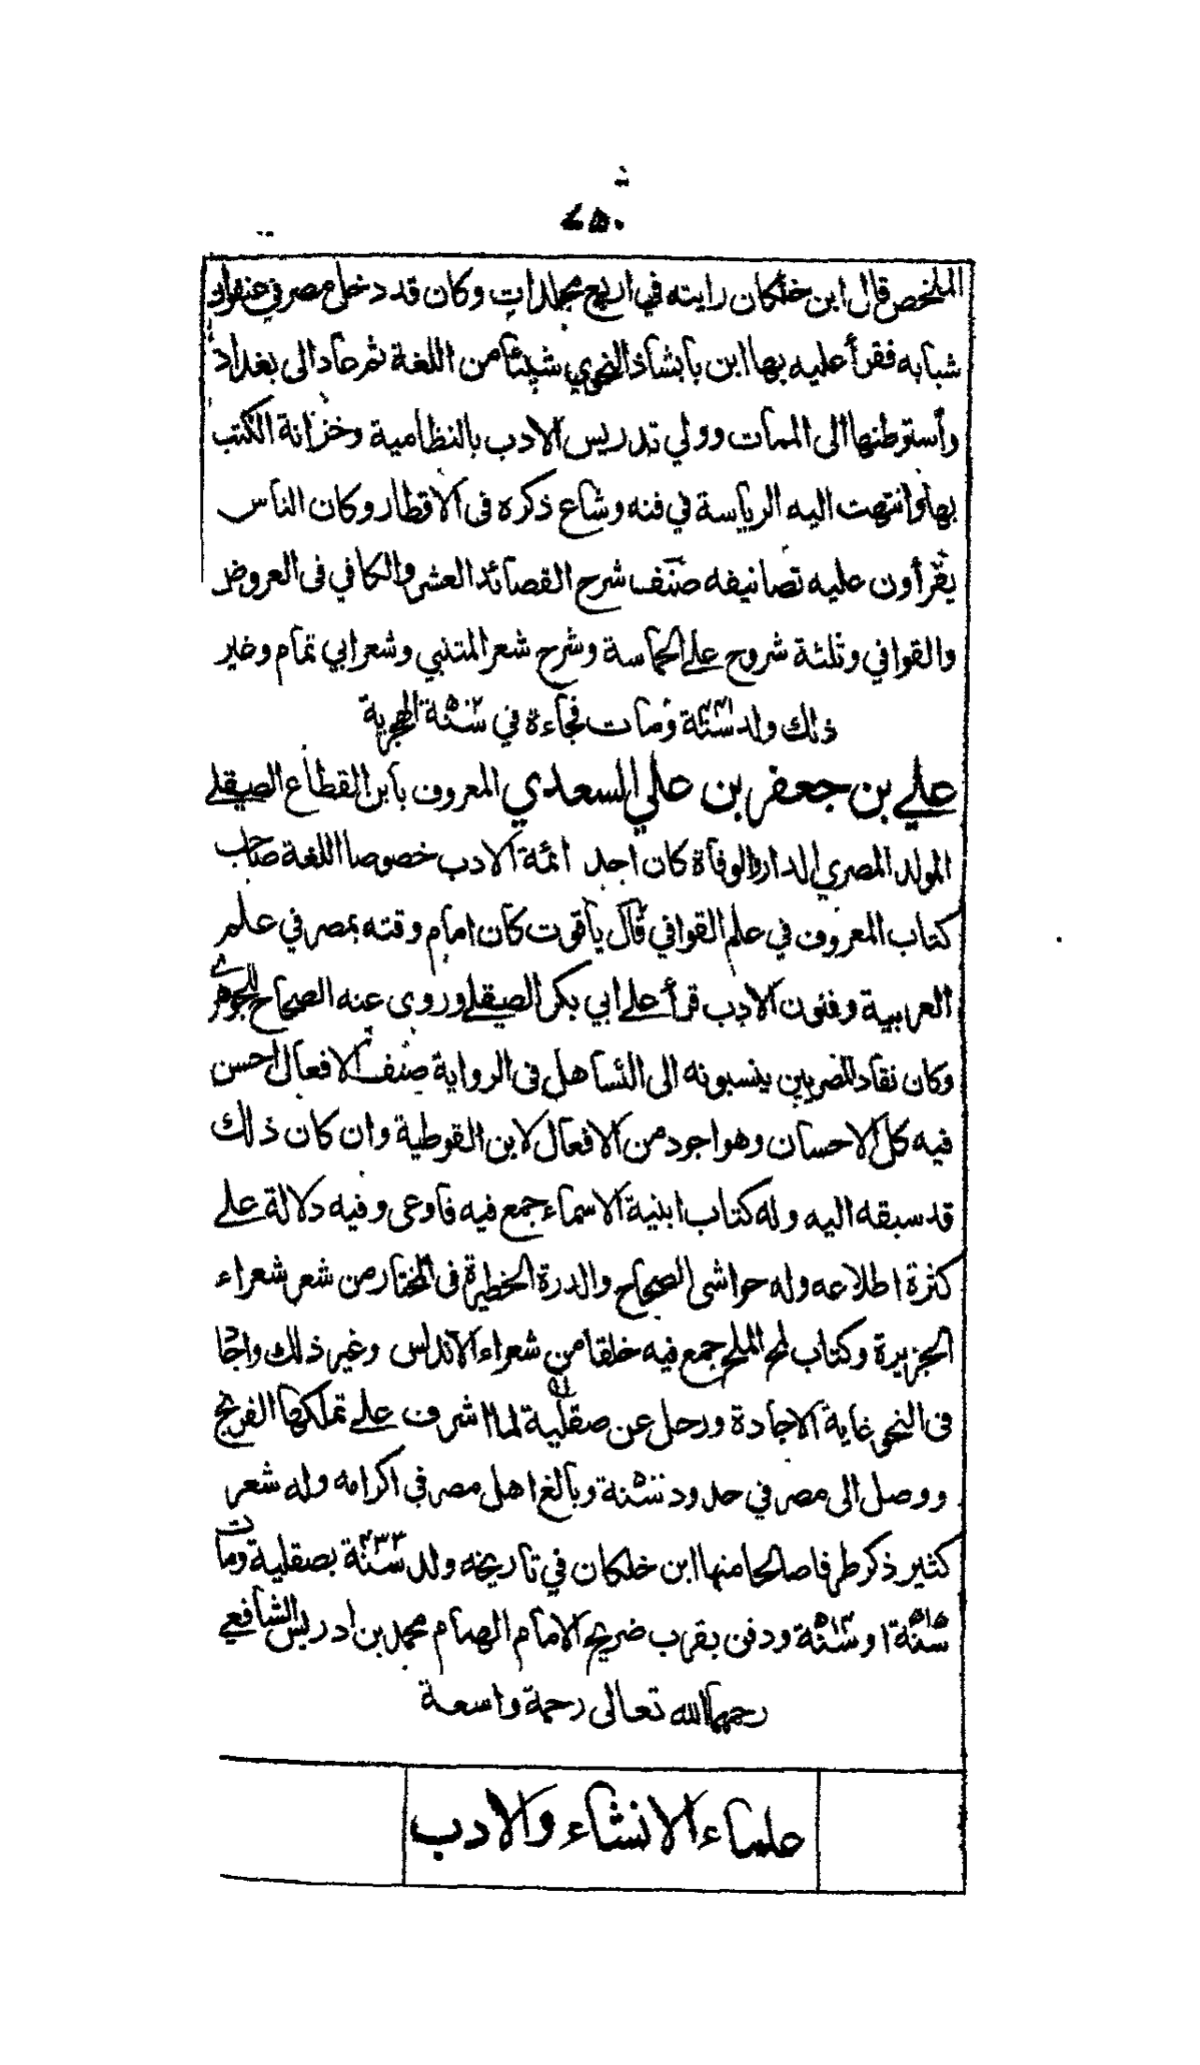 ٤٥٠
الملخص قال ابن خلكان رايته في اربع مجلدات وكان قد دخل مصر في عنفوان
شبابه فقرأ عليه بها ابن بابشاذ النحوي شيئا من اللغة ثم عاد الى بغداد
وأستوطنها الى الممات وولي تدريس الادب بالنظامية وخزانة الكتب
بها وانتهت اليه الرياسة في فنه وشاع ذكره فى الاقطار وكان الناس
يقرأون عليه تصانيفه صنف شرح القصائد العشر والكافي فى العروض
والقوافي وثلثة شروح على الحماسة وشرح شعر المتنبي وشعر ابي تمام وغير
ذلك ولد سنة ٤٢١ ومات فجاءة في سنة ٥٠٢ الهجرية
علي بن جعفر بن علي السعدي المعروف بابن القطاع الصيقلے
المولد المصري الدار والوفاة كان احد ائمة الادب خصوصا اللغة صاحب
كتاب المعروف في علم القوافي قال ياقوت كان امام وقته بمصر في علم
العربية وفنون الادب قرأ على ابي بكر الصيقلے وروى عنه الصحاح للجوهرے
وكان نقاد المصريين ينسبونه الى التساهل فى الرواية صنف الافعال احسن
فيه كل الاحسان وهو اجود من الافعال لابن القوطية وان كان ذلك
قد سبقه اليه وله كتاب ابنية الاسماء جمع فيه فاوعى وفيه دلالة علے
كثرة اطلاعه وله حواشى الصحاح والدرة الخطيرة فى المختار من شعر شعراء
الجزيرة وكتاب لمح الملح جمع فيه خلقا من شعراء الاندلس وغير ذلك واجاد
فى النحو غاية الاجادة ورحل عن صقلية لما اشرف علے تملكها الفرنج
ووصل الى مصر في حدود سنة ٥٠٠ وبالغ اهل مصر في اكرامه وله شعر
كثير ذكر طرفا صالحا منها ابن خلكان في تاريخه ولد سنة ٤٣٣ بصقلية ومات
سنة ٥١٥ او سنة ٥١٤ ودفن بقرب ضريح الامام الهمام محمد بن ادريس الشافعي
رحمهما الله تعالى رحمة واسعة
علماء الانشاء والادب